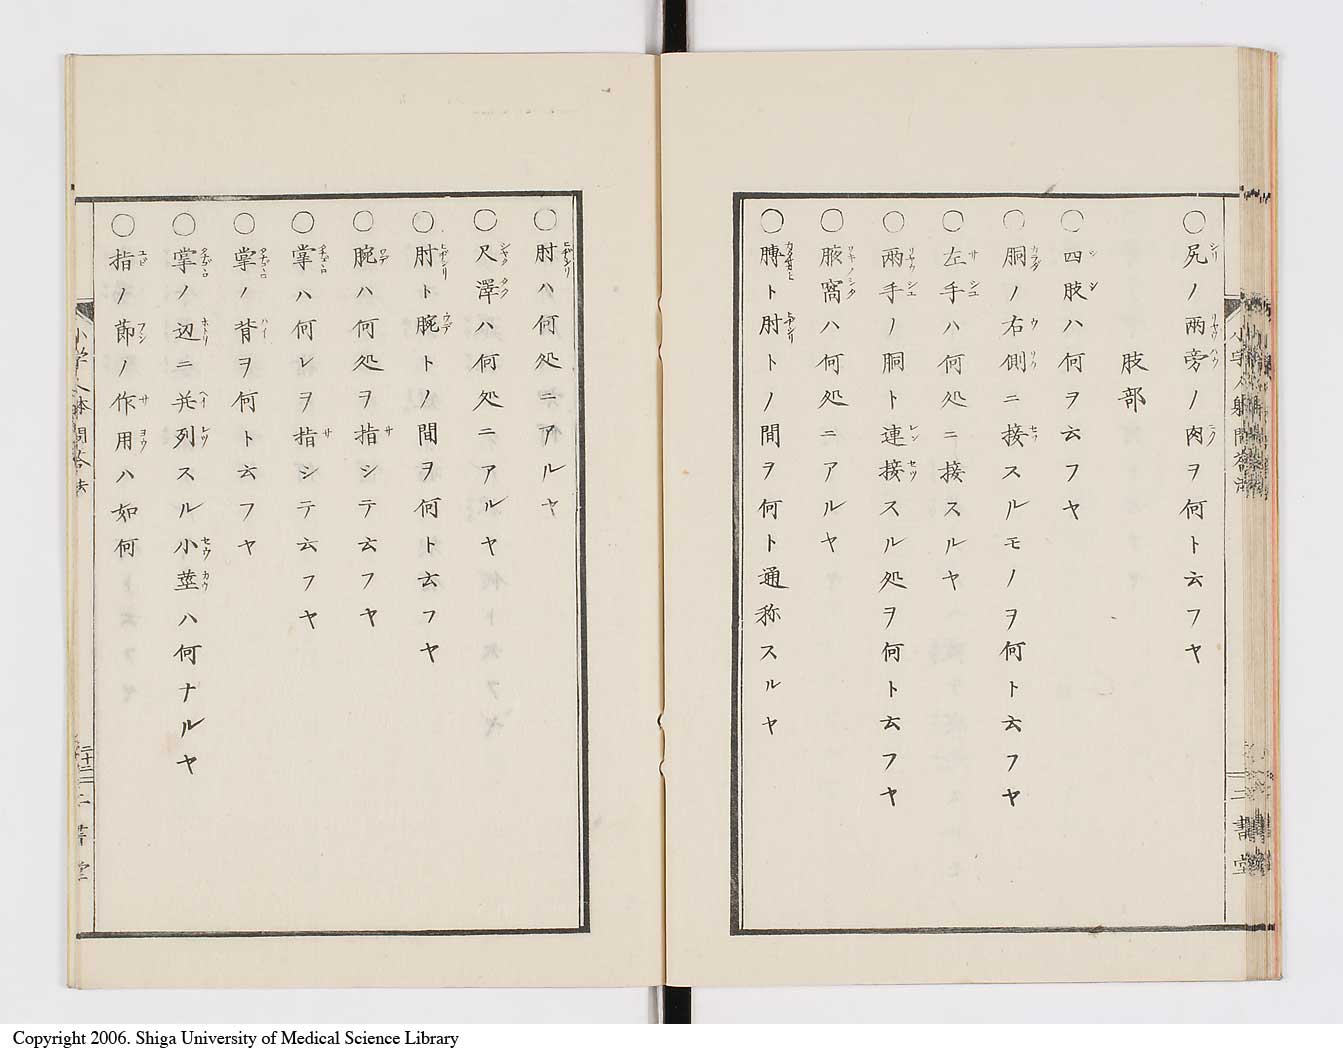 ○尻ノ両旁ノ肉ヲ何ト云フヤ
肢部
○四肢ハ何ヲ云フヤ
○胴ノ右側ニ接スルモノヲ何ト云フヤ
○左手ハ何処ニ接スルヤ
○兩手ノ胴ト連接スル処ヲ何ト云フヤ
○腋窩ハ何処ニアルヤ
○膊ト肘トノ間ヲ何ト通称スルヤ
二書堂
○肘ハ何処ニアルヤ
○尺澤ハ何処ニアルヤ
○肘ト腕トノ間ヲ何ト云フヤ
○腕ハ何処ヲ指シテ云フヤ
○掌ハ何レヲ指シテ云フヤ
○掌ノ背ヲ何ト云フヤ
○掌ノ辺ニ並列スル小莖ハ何ナルヤ
○指ノ節ノ作用ハ如何
小学人体問答
Copyright 2006. Shiga University of Medical Science Library